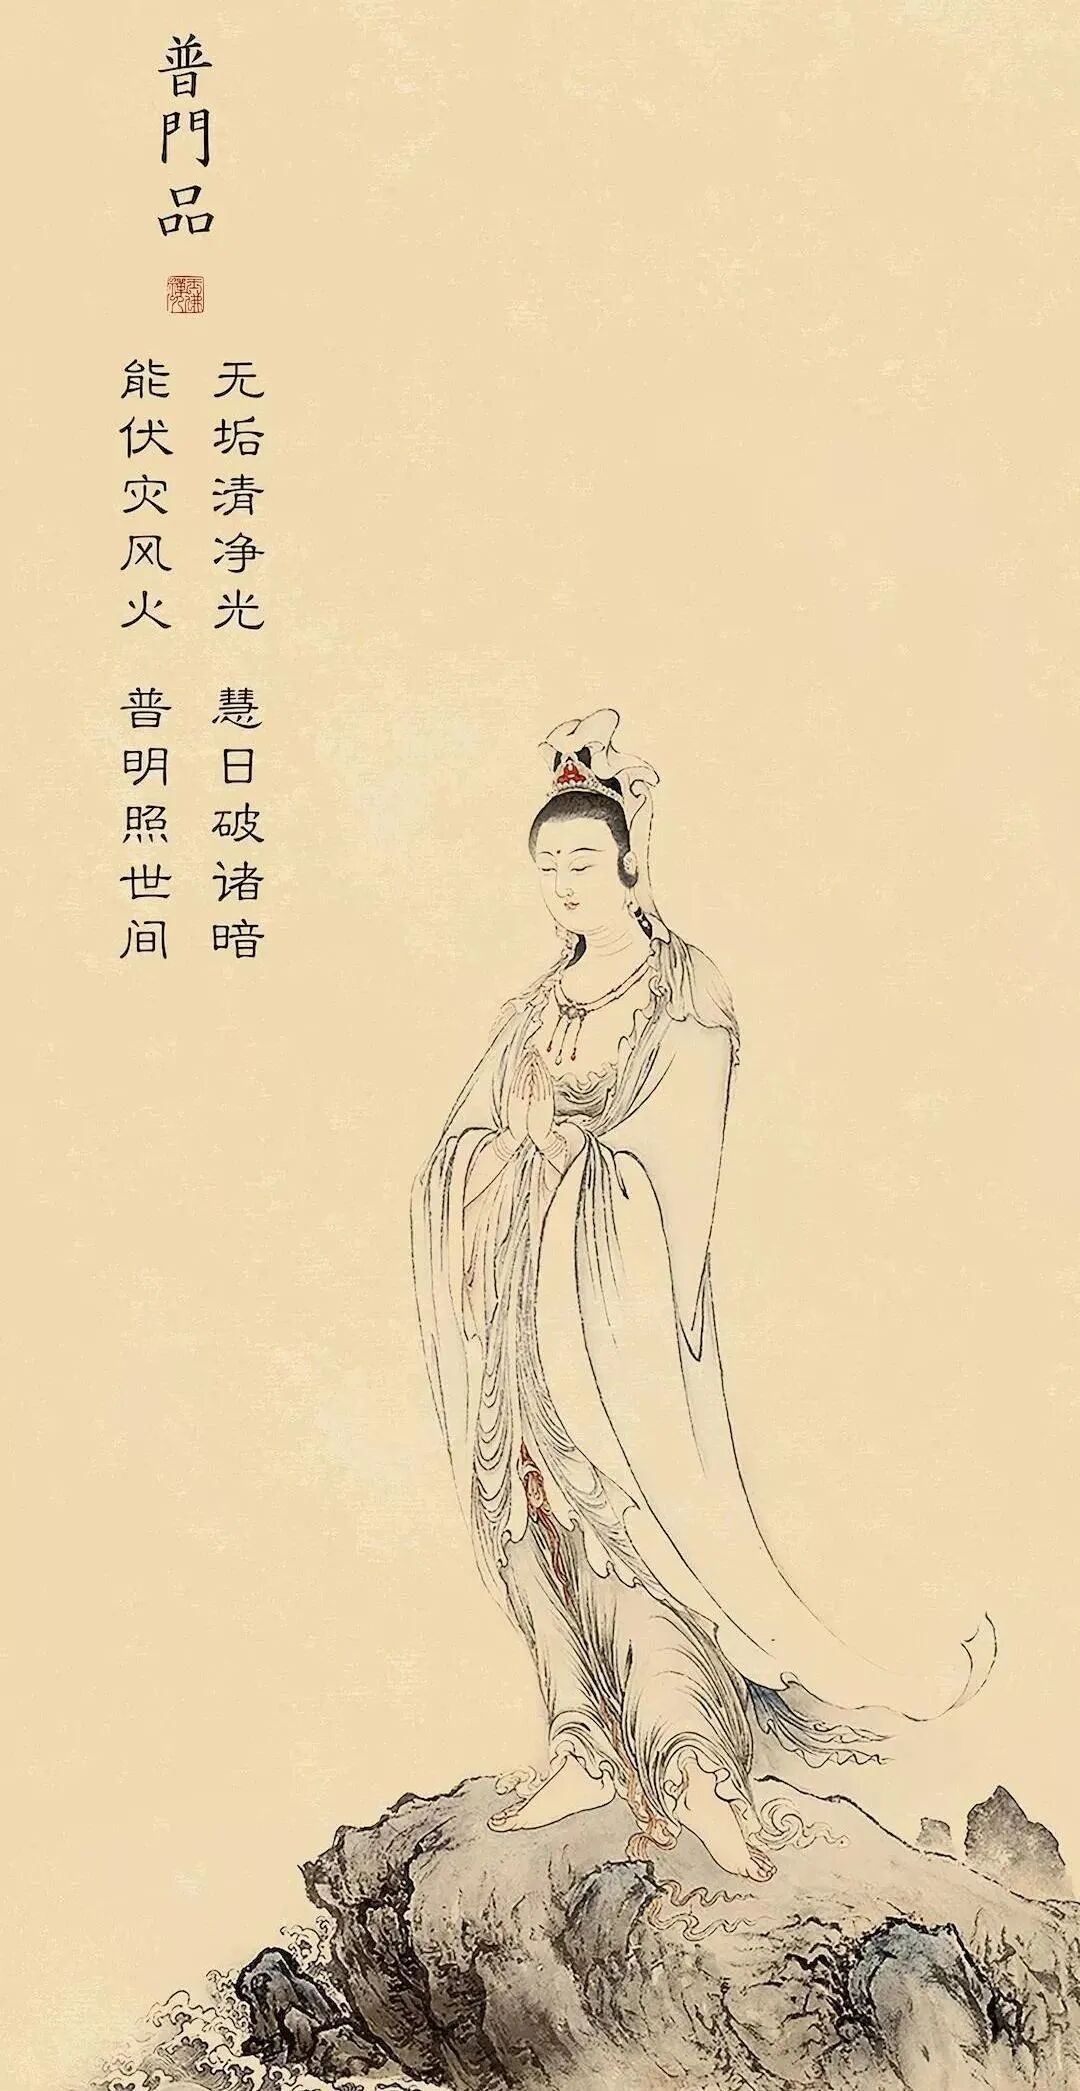 普門品
无垢清净光 慧日破诸暗
能伏灾风火 普明照世间